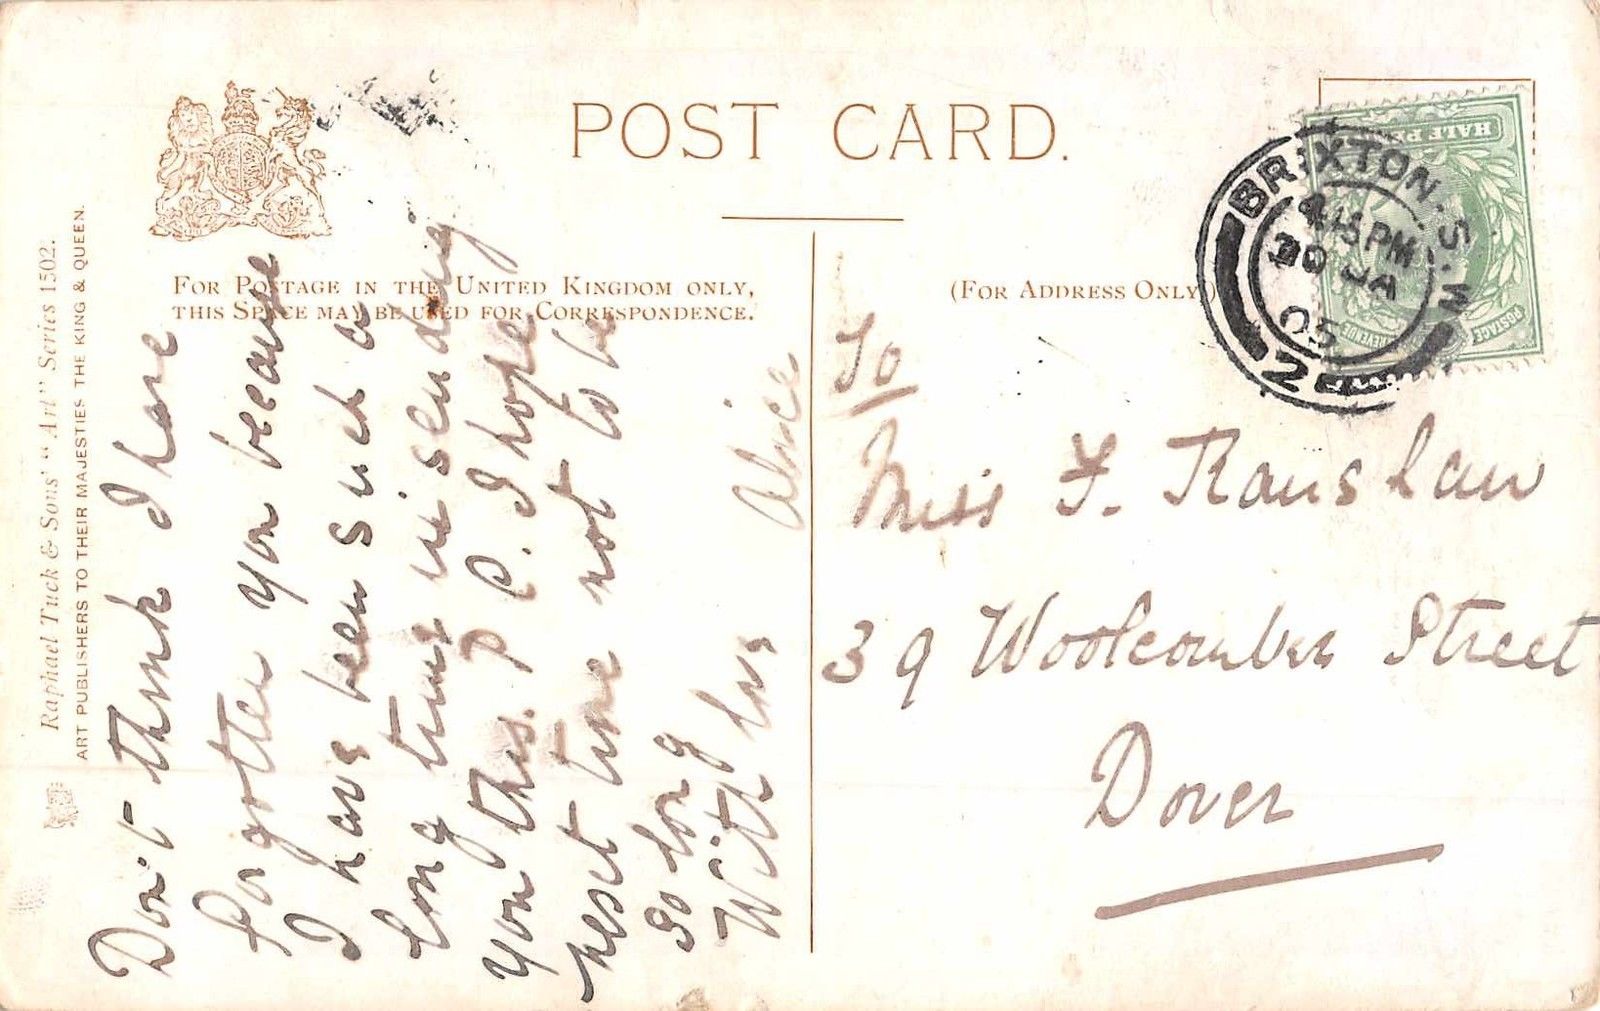 POST CARD.
FOR POSTAGE IN THE UNITED KINGDOM ONLY,
THIS SPACE MAY BE USED FOR CORRESPONDENCE.
(FOR ADDRESS ONLY)
Raphael Tuck & Sons' "Art" Series 1502.
ART PUBLISHERS TO THEIR MAJESTIES THE KING & QUEEN.
Don't think I have
forgotten you because
I have been such a
long time in sending
you this. p C. I hope
next time not to be
so long
With love
Alice
To
Miss F. Ranshaw
39 Woolcomber Street
Dover
HALF PE
POSTAGE REVENUE
BRIXTON. S.W.
4.15 PM
30 JA
05